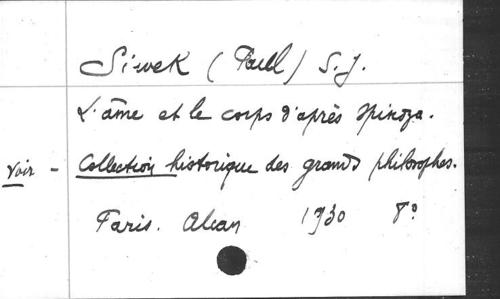 Siwek (Paul) S.J.
L'âme et le corps d'après Spinoza.
Voir - Collection historique des grands philosophes.
Paris. Alcan 1930 8°